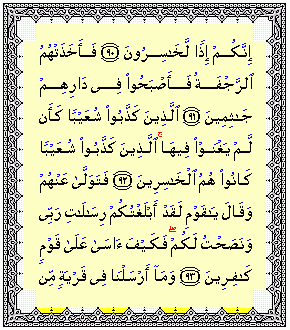 إِنَّكُمْ إِذًا لَّخَٰسِرُونَ ٩٠ فَأَخَذَتْهُمُ
ٱلرَّجْفَةُ فَأَصْبَحُوا۟ فِى دَارِهِمْ
جَٰثِمِينَ ٩١ ٱلَّذِينَ كَذَّبُوا۟ شُعَيْبًا كَأَن
لَّمْ يَغْنَوْا۟ فِيهَا ۚ ٱلَّذِينَ كَذَّبُوا۟ شُعَيْبًا
كَانُوا۟ هُمُ ٱلْخَٰسِرِينَ ٩٢ فَتَوَلَّىٰ عَنْهُمْ
وَقَالَ يَٰقَوْمِ لَقَدْ أَبْلَغْتُكُمْ رِسَٰلَٰتِ رَبِّى
وَنَصَحْتُ لَكُمْ ۖ فَكَيْفَ ءَاسَىٰ عَلَىٰ قَوْمٍ
كَٰفِرِينَ ٩٣ وَمَآ أَرْسَلْنَا فِى قَرْيَةٍ مِّن